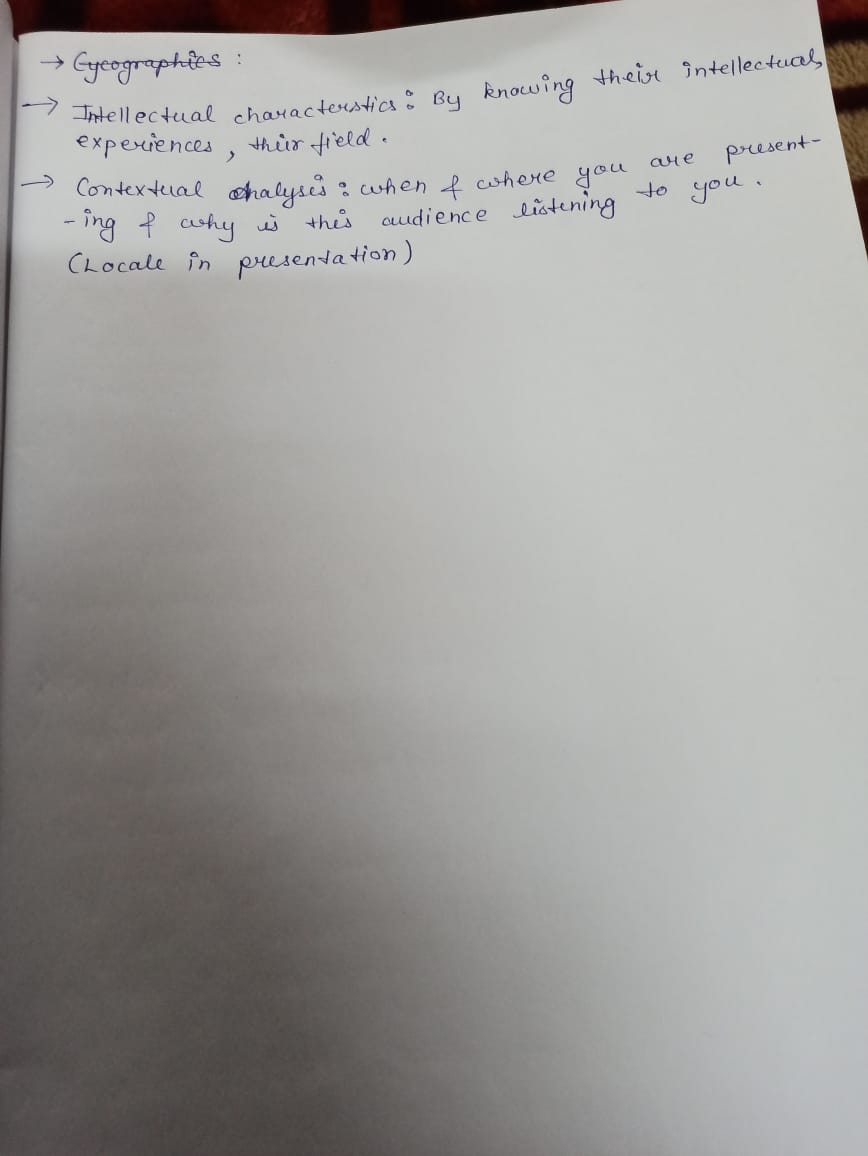 → Gyeographies :
→ Intellectual characterstics : By knowing their intellectual,
experiences, their field.
→ Contextual analysis : when & where you are present-
-ing & why is this audience listening to you.
(Locale in presentation)